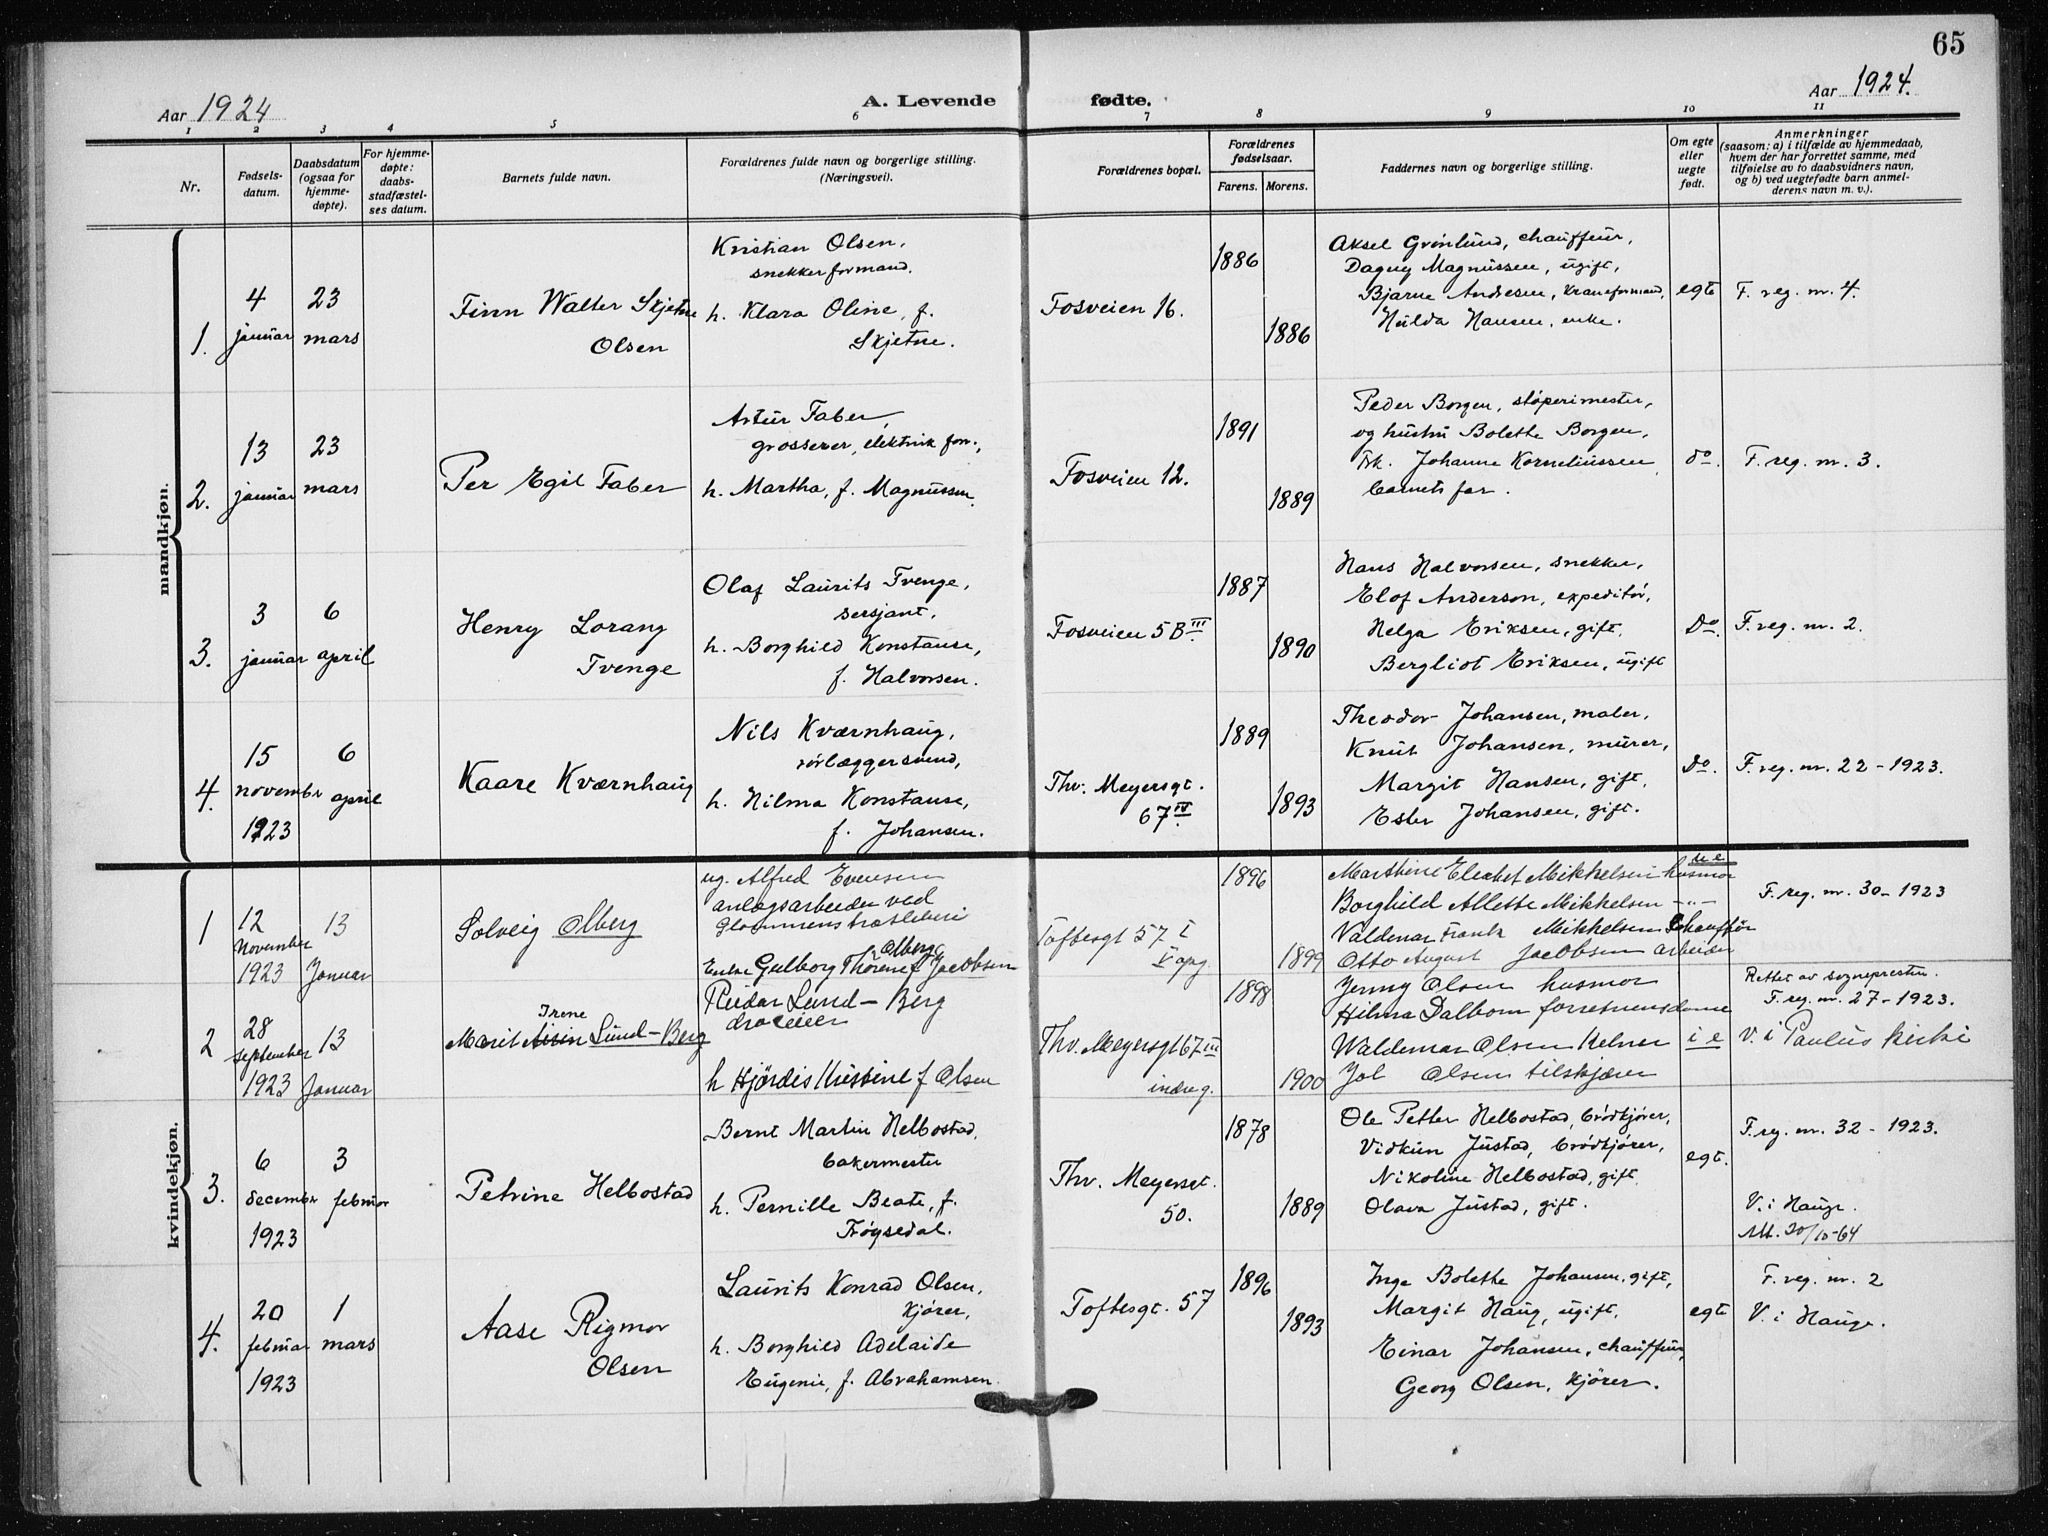 65
Aar 1924
A. Levende fødte.
Aar 1924.
1 2 3 4 5 6 7 8 9 10 11
Nr.
Fødsels-
datum.
Daabsdatum
(ogsaa for
hjemme-
døpte).
For hjemme-
døpte:
daabs-
stadfæstel-
ses datum.
Barnets fulde navn.
Forældrenes fulde navn og borgerlige stilling.
(Næringsvei).
Forældrenes bopæl.
Forældrenes
fødselsaar.
Farens. Morens.
Faddernes navn og borgerlige stilling.
Om egte
eller
uegte
født.
Anmerkninger
(saasom: a) i tilfælde av hjemmedaab,
hvem der har forrettet samme, med
tilføielse av to daabsvidners navn,
og b) ved uegtefødte barn anmel-
derens navn m. v.).
mandkjøn.
1.
4
januar
23
mars
Finn Walter Skjetne
Olsen
Kristian Olsen,
snekkerformand.
h. Klara Oline, f.
Skjetne.
Fosveien 16.
1886
1886
Aksel Grönlund, chauffeur,
Dagny Magnussen, ugift,
Bjarne Andresen, kranformand,
Hilda Hansen, enke.
egte
F. reg. nr. 4.
2.
13
januar
23
mars
Per Egil Faber
Artur Faber,
grosserer, elektrik forr.,
h. Martha, f. Magnussen.
Fosveien 12.
1891
1889
Peder Borgen, støperimester,
og hustru Bolette Borgen,
Frk. Johanne Korneliussen
barnets far.
do.
F. reg. nr. 3.
3.
3
januar
6
april
Henry Lorang
Tvenge
Olaf Laurits Tvenge,
sersjant,
h. Borghild Konstanse,
f. Halvorsen.
Fosveien 5 B III
1887
1890
Hans Halvorsen, snekker,
Elof Anderson, expeditör,
Helga Eriksen, gift,
Bergliot Eriksen, ugift
Do.
F. reg. nr. 2.
4.
15
novembr
1923
6
april
Kaare Kværnhaug
Nils Kværnhaug,
rörlæggersvend,
h. Hilma Konstanse,
f. Johansen.
Thv. Meyersgt.
67 IV
1889
1893
Theodor Johansen, maler,
Knut Johansen, murer,
Margit Hansen, gift,
Ester Johansen, gift.
Do.
F. reg. nr. 22 - 1923.
kvindekjøn.
1
12
November
1923
13
Januar
Solveig Olberg
ug. Alfred Evensen
anlægsarbeider ved
Glommens træsliberi
Enke Gulborg Thorene Olberg f Jacobsen
Toftesgt 57 I
V opg
1896
1899
Marthine Elisabet Mikkelsen husmor
Borghild Alette Mikkelsen -"-
Valdemar Frantz Mikkelsen Chauffør
Otto August Jacobsen arbeider
u e
F. reg. nr. 30 - 1923
2
28
September
1923
13
Januar
Irene
Marit Lund-Berg
Reidar Lund-Berg
h Hjördis Kristine f Olsen
Thv. Meyersgt 67 III
indreg.
1898
1900
Jenny Olsen husmor
Hilma Dalbom forretningsdame
Waldemar Olsen Kelner
Olsen tilskjærer
i e
Rettet av sognepresten.
F. reg. nr. 27 - 1923.
V. i Paulus kirke
3.
6
decembr
1923
3
februar
Petrine Helbostad
Bernt Martin Helbostad,
bakermester
h. Pernille Beate, f.
Frøysedal.
Thv. Meyersgt.
50.
1878
1889
Ole Petter Helbostad, brödkjörer,
Vidkun Justad, brödkjörer,
Nikoline Helbostad, gift,
Olava Justad, gift.
egt.
F. reg. nr. 32 - 1923.
V. i Hauge.
Att. 30/10-64
4.
20
februar
1923
1
mars
Aase Rigmor
Olsen
Laurits Konrad Olsen,
kjörer,
h. Borghild Adelaide
Eugenie, f. Abrahamsen.
Toftesgt. 57
1896
1893
Inga Bolette Johansen, gift,
Margit Haug, ugift,
Einar Johansen, chauffeur,
Georg Olsen, kjörer.
egt
F. reg. nr. 2
V. i Hauge.